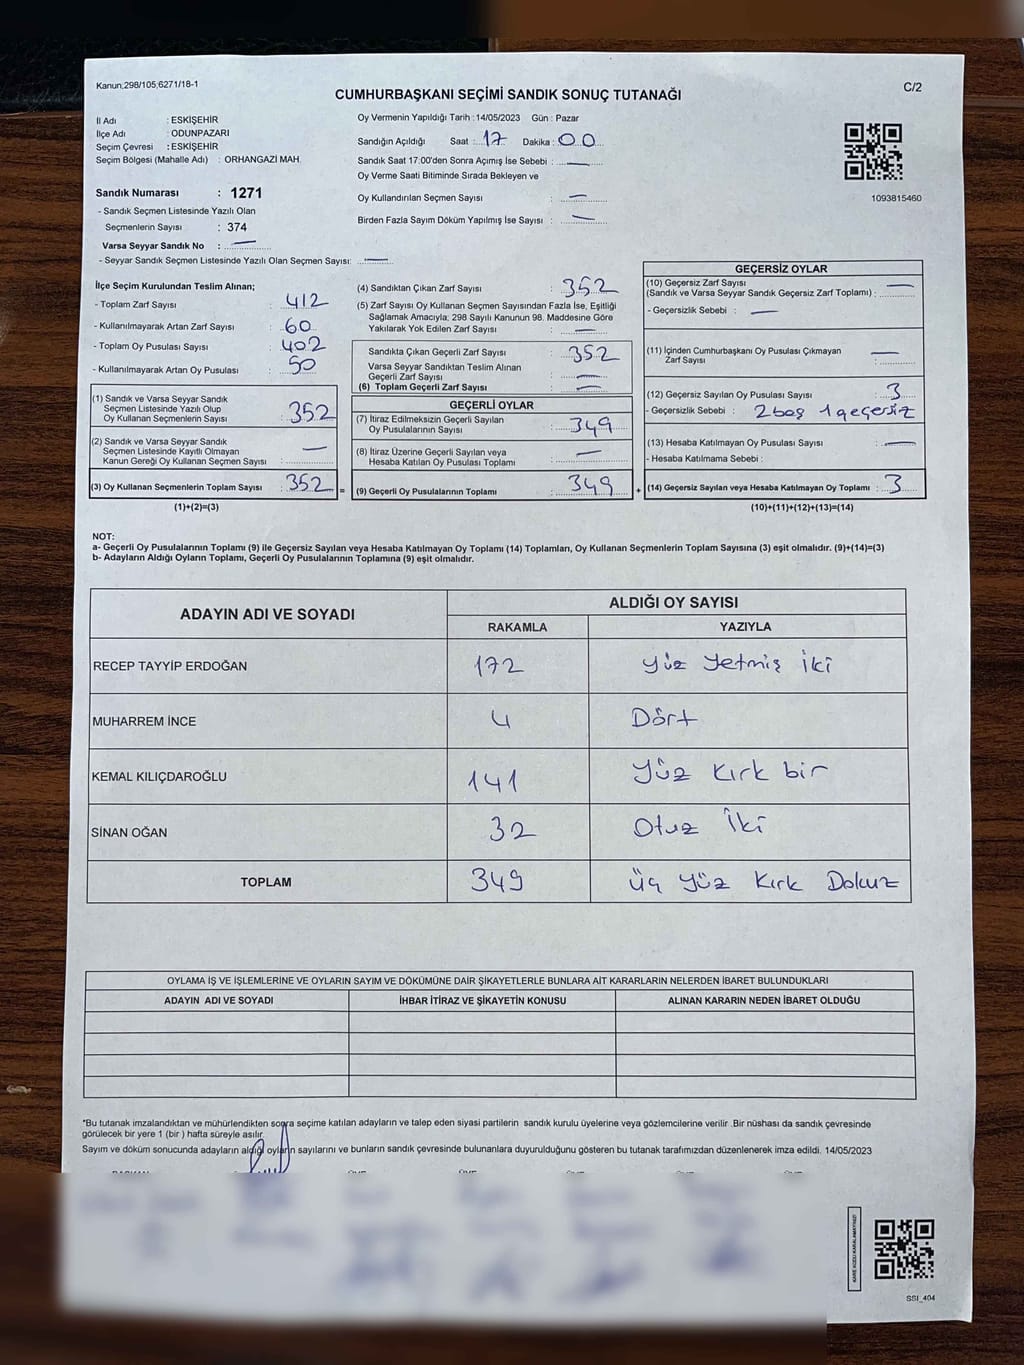 Kanun;298/105;6271/18-1
C/2
CUMHURBAŞKANI SEÇİMİ SANDIK SONUÇ TUTANAĞI
İl Adı : ESKİŞEHİR
İlçe Adı : ODUNPAZARI
Seçim Çevresi : ESKİŞEHİR
Seçim Bölgesi (Mahalle Adı) : ORHANGAZİ MAH.
Sandık Numarası : 1271
- Sandık Seçmen Listesinde Yazılı Olan
Seçmenlerin Sayısı : 374
Varsa Seyyar Sandık No : —
- Seyyar Sandık Seçmen Listesinde Yazılı Olan Seçmen Sayısı: —
Oy Vermenin Yapıldığı Tarih : 14/05/2023 Gün : Pazar
Sandığın Açıldığı Saat : 17 Dakika : 00
Sandık Saat 17:00'den Sonra Açımış İse Sebebi : —
Oy Verme Saati Bitiminde Sırada Bekleyen ve
Oy Kullandırılan Seçmen Sayısı : —
Birden Fazla Sayım Döküm Yapılmış İse Sayısı : —
1093815460
İlçe Seçim Kurulundan Teslim Alınan;
- Toplam Zarf Sayısı : 412
- Kullanılmayarak Artan Zarf Sayısı : 60
- Toplam Oy Pusulası Sayısı : 402
- Kullanılmayarak Artan Oy Pusulası : 50
(1) Sandık ve Varsa Seyyar Sandık
Seçmen Listesinde Yazılı Olup
Oy Kullanan Seçmenlerin Sayısı : 352
(2) Sandık ve Varsa Seyyar Sandık
Seçmen Listesinde Kayıtlı Olmayan
Kanun Gereği Oy Kullanan Seçmen Sayısı : —
(3) Oy Kullanan Seçmenlerin Toplam Sayısı : 352 =
(1)+(2)=(3)
(4) Sandıktan Çıkan Zarf Sayısı : 352
(5) Zarf Sayısı Oy Kullanan Seçmen Sayısından Fazla İse, Eşitliği
Sağlamak Amacıyla; 298 Sayılı Kanunun 98. Maddesine Göre
Yakılarak Yok Edilen Zarf Sayısı : —
Sandıkta Çıkan Geçerli Zarf Sayısı : 352
Varsa Seyyar Sandıktan Teslim Alınan
Geçerli Zarf Sayısı : —
(6) Toplam Geçerli Zarf Sayısı : —
GEÇERLİ OYLAR
(7) İtiraz Edilmeksizin Geçerli Sayılan
Oy Pusulalarının Sayısı : 349
(8) İtiraz Üzerine Geçerli Sayılan veya
Hesaba Katılan Oy Pusulası Toplamı : —
(9) Geçerli Oy Pusulalarının Toplamı : 349 +
GEÇERSİZ OYLAR
(10) Geçersiz Zarf Sayısı
(Sandık ve Varsa Seyyar Sandık Geçersiz Zarf Toplamı) : —
- Geçersizlik Sebebi : —
(11) İçinden Cumhurbaşkanı Oy Pusulası Çıkmayan
Zarf Sayısı : —
(12) Geçersiz Sayılan Oy Pusulası Sayısı : 3
- Geçersizlik Sebebi : 2 boş 1 geçersiz
(13) Hesaba Katılmayan Oy Pusulası Sayısı : —
- Hesaba Katılmama Sebebi :
(14) Geçersiz Sayılan veya Hesaba Katılmayan Oy Toplamı : 3
(10)+(11)+(12)+(13)=(14)
NOT:
a- Geçerli Oy Pusulalarının Toplamı (9) ile Geçersiz Sayılan veya Hesaba Katılmayan Oy Toplamı (14) Toplamları, Oy Kullanan Seçmenlerin Toplam Sayısına (3) eşit olmalıdır. (9)+(14)=(3)
b- Adayların Aldığı Oyların Toplamı, Geçerli Oy Pusulalarının Toplamına (9) eşit olmalıdır.
ADAYIN ADI VE SOYADI
ALDIĞI OY SAYISI
RAKAMLA YAZIYLA
RECEP TAYYİP ERDOĞAN 172 Yüz Yetmiş İki
MUHARREM İNCE 4 Dört
KEMAL KILIÇDAROĞLU 141 Yüz Kırk bir
SİNAN OĞAN 32 Otuz İki
TOPLAM 349 Üç Yüz Kırk Dokuz
OYLAMA İŞ VE İŞLEMLERİNE VE OYLARIN SAYIM VE DÖKÜMÜNE DAİR ŞİKAYETLERLE BUNLARA AİT KARARLARIN NELERDEN İBARET BULUNDUKLARI
ADAYIN ADI VE SOYADI İHBAR İTİRAZ VE ŞİKAYETİN KONUSU ALINAN KARARIN NEDEN İBARET OLDUĞU
*Bu tutanak imzalandıktan ve mühürlendikten sonra seçime katılan adayların ve talep eden siyasi partilerin sandık kurulu üyelerine veya gözlemcilerine verilir .Bir nüshası da sandık çevresinde
görülecek bir yere 1 (bir ) hafta süreyle asılır.
Sayım ve döküm sonucunda adayların aldığı oyların sayılarını ve bunların sandık çevresinde bulunanlara duyurulduğunu gösteren bu tutanak tarafımızdan düzenlenerek imza edildi. 14/05/2023
KARE KODU KARALAMAYINIZ!
SSI_404